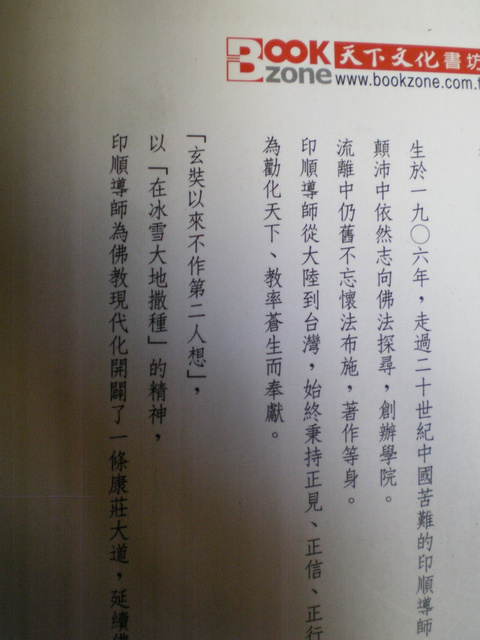 BOOK zone 天下文化書坊
www.bookzone.com.t
生於一九〇六年，走過二十世紀中國苦難的印順導師
顛沛中依然志向佛法探尋，創辦學院。
流離中仍舊不忘懷法布施，著作等身。
印順導師從大陸到台灣，始終秉持正見、正信、正行
為勸化天下、教率蒼生而奉獻。
「玄奘以來不作第二人想」，
以「在冰雪大地撒種」的精神，
印順導師為佛教現代化開闢了一條康莊大道，延續